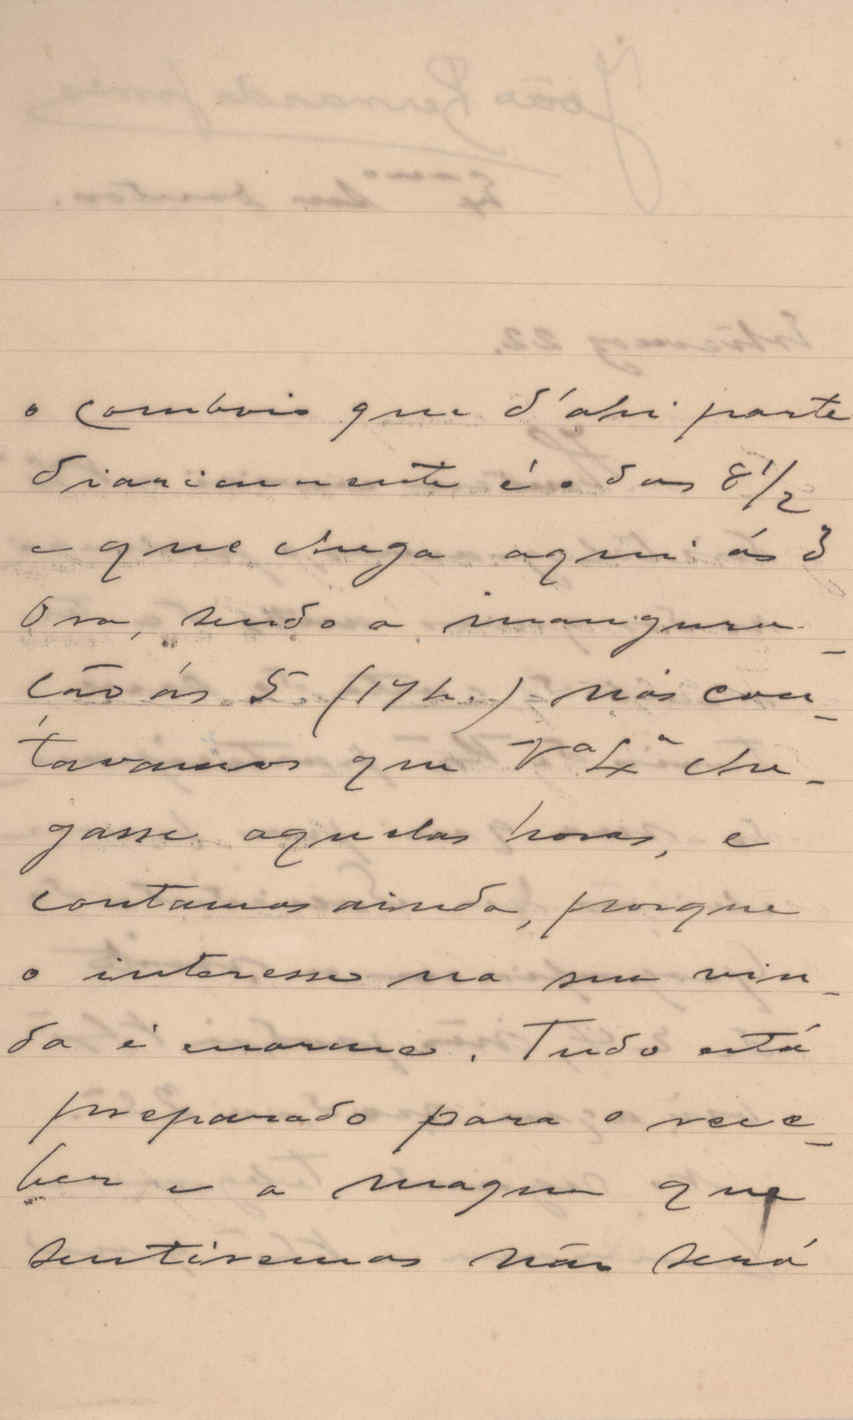 o comboio que d'ahi parte
diariamente é o das 8 1/2
e que chega aqui ás 3
Ora, sendo a inaugura-
ção ás 5 (17 h.) nós con-
tavamos que V.ª Ex.ª che-
gasse aquelas horas, e
contamos ainda, porque
o interesse na sua vin-
da é enorme. Tudo está
preparado para o rece-
ber e a magua que
sentiremos não será